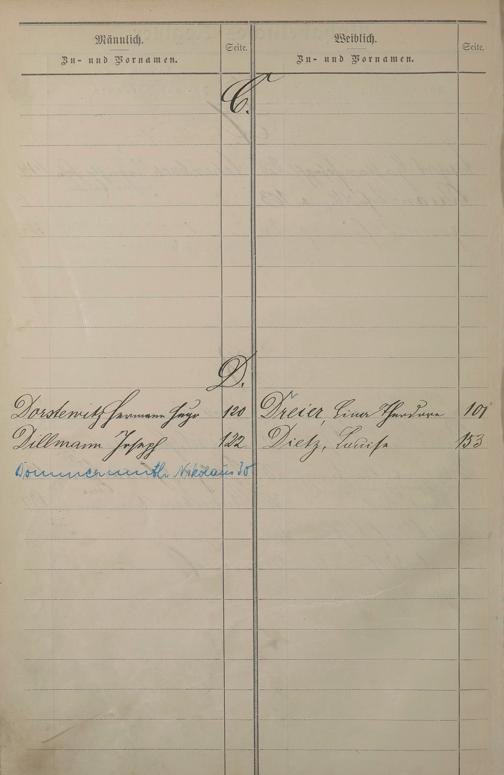 Männlich.
Seite.
Zu- und Vornamen.
Weiblich.
Seite.
Zu- und Vornamen.
C.
D.
Dorstewitz Hermann Hugo 120
Dreier, Lina Theodore 101
Dillmann Joseph 122
Dietz, Louise 153
Dommermuth Nikolaus 30